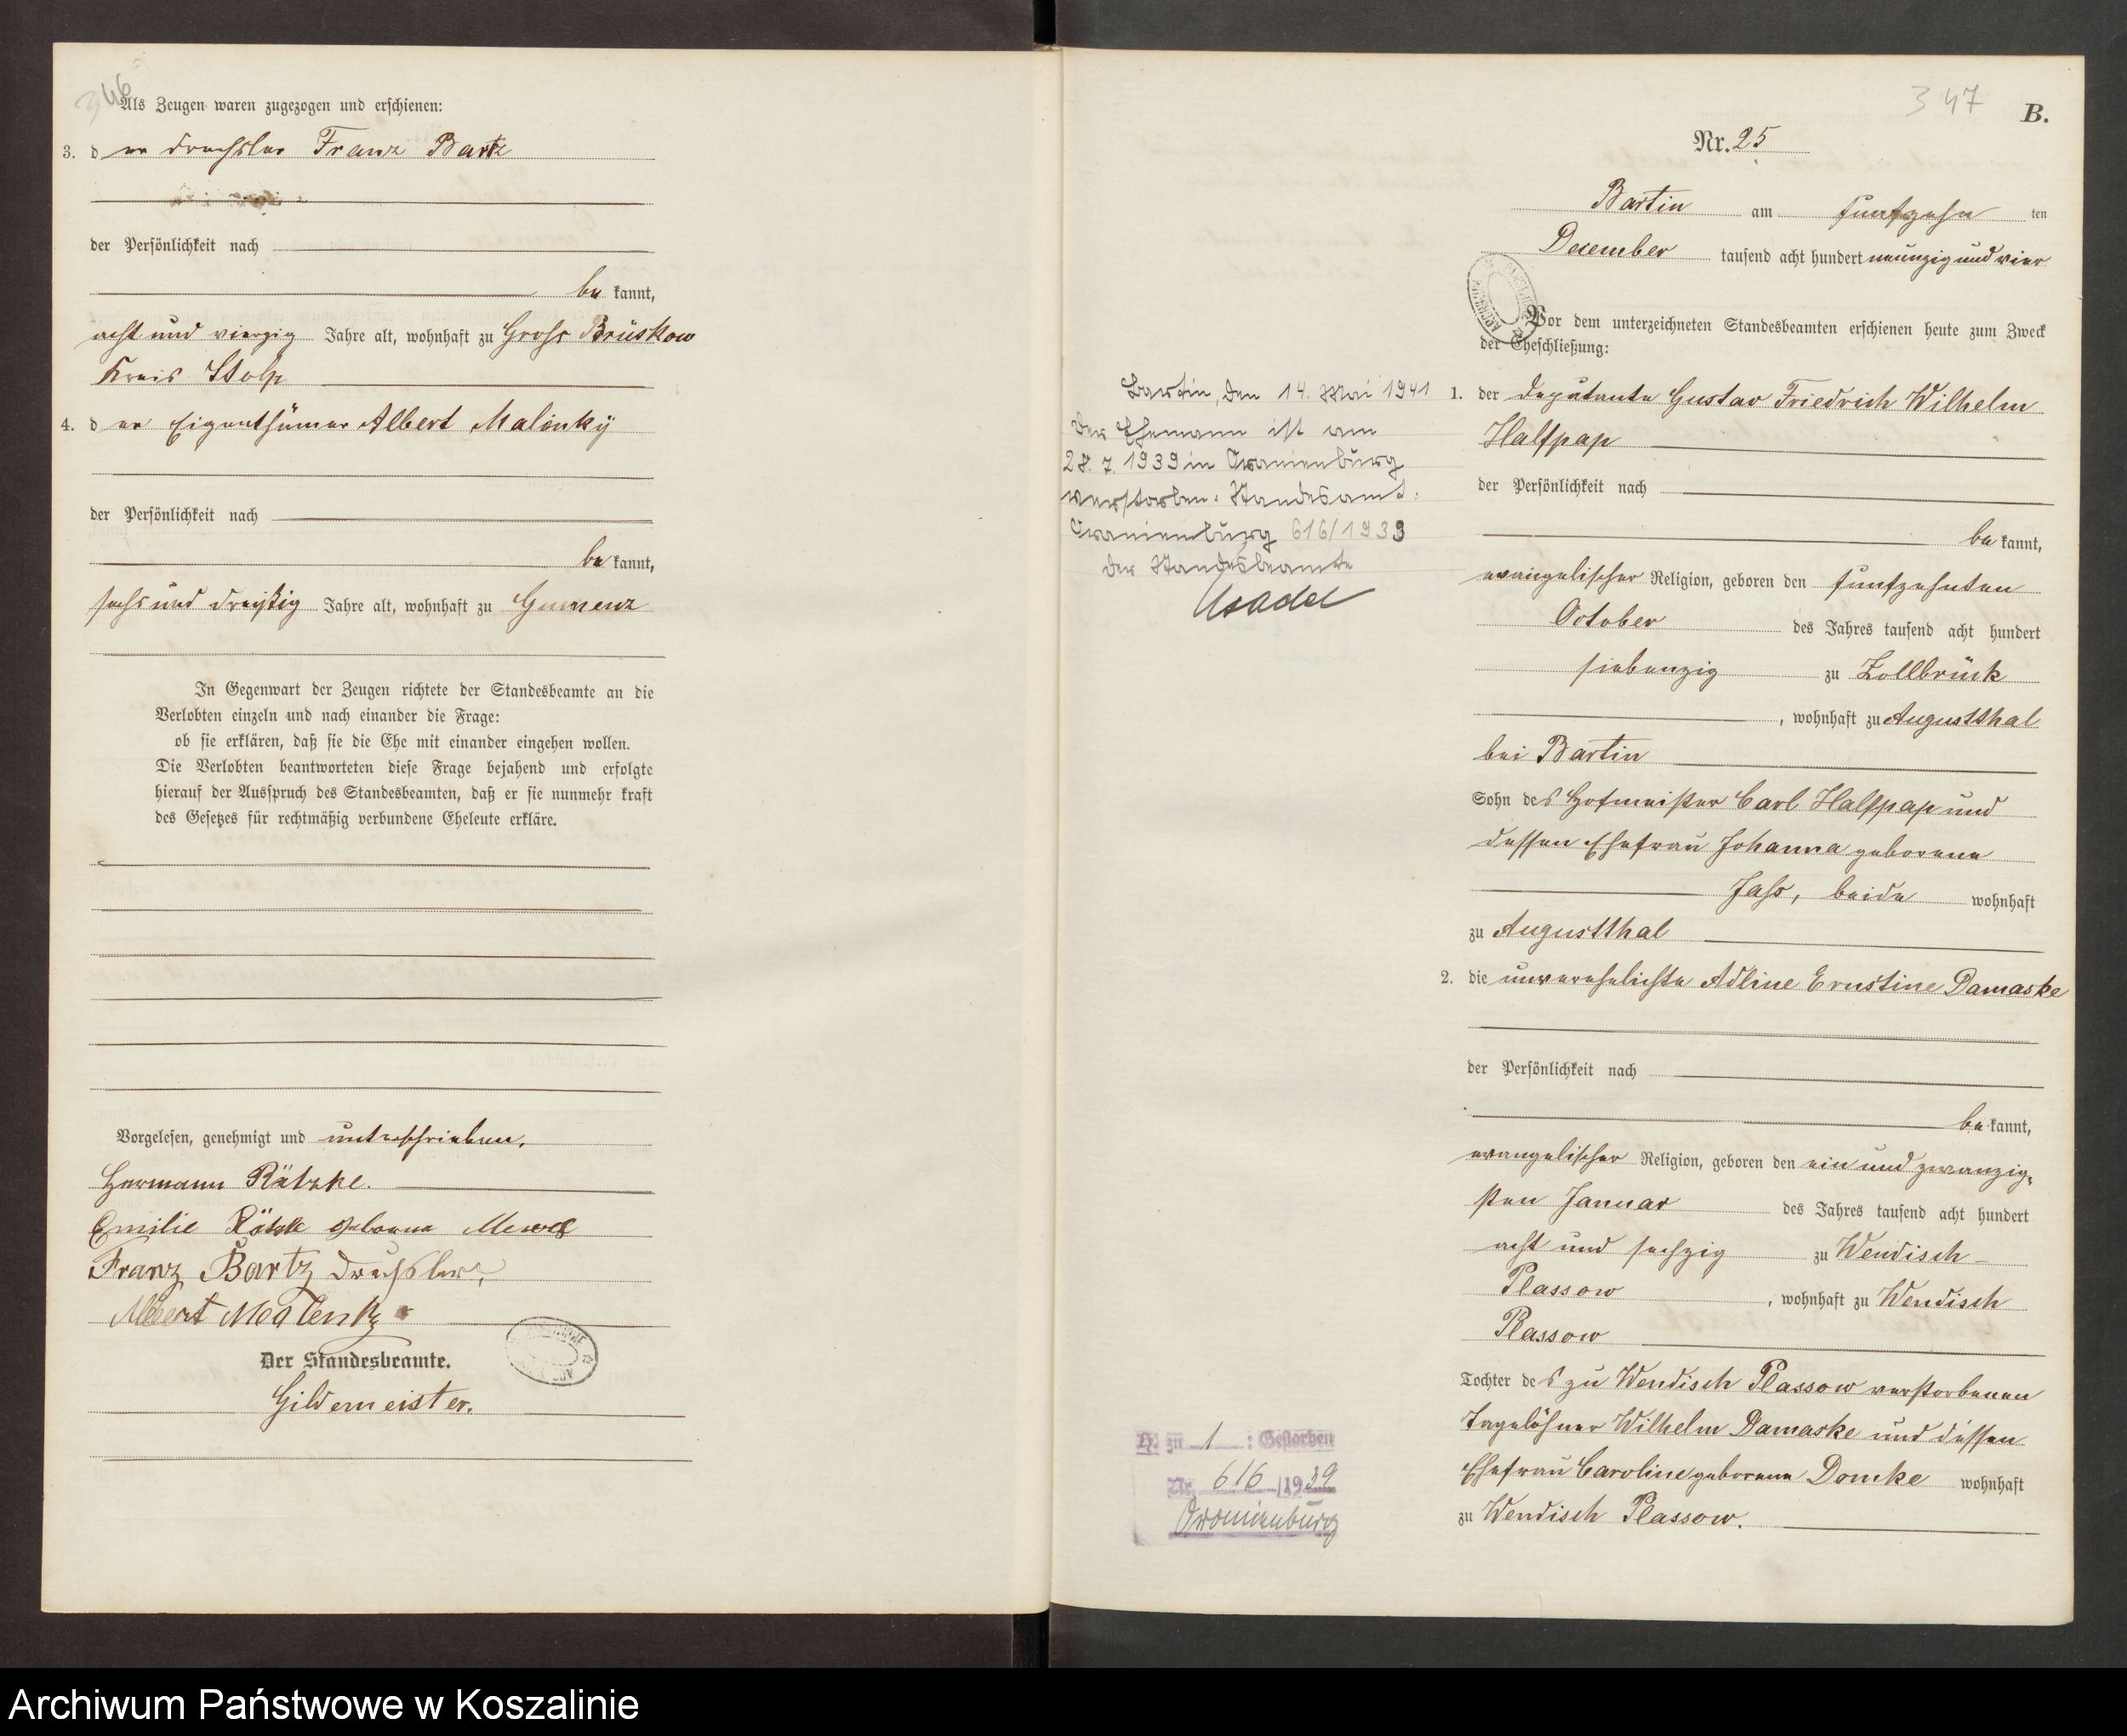 346
Als Zeugen waren zugezogen und erschienen:
3. der Drechsler Franz Bartz
der Persönlichkeit nach
bekannt,
acht und vierzig Jahre alt, wohnhaft zu Gross Brüskow
Kreis Stolp
4. der Eigenthümer Albert Malinky
der Persönlichkeit nach
bekannt,
sechs und dreißig Jahre alt, wohnhaft zu Gumenz
In Gegenwart der Zeugen richtete der Standesbeamte an die
Verlobten einzeln und nach einander die Frage:
ob sie erklären, daß sie die Ehe mit einander eingehen wollen.
Die Verlobten beantworteten diese Frage bejahend und erfolgte
hierauf der Ausspruch des Standesbeamten, daß er sie nunmehr kraft
des Gesetzes für rechtmäßig verbundene Eheleute erkläre.
Vorgelesen, genehmigt und unterschrieben.
Hermann Rätzke.
Emilie Rätzke geborene
Franz Bartz Drechsler
Albert Malenky
Der Standesbeamte.
Gildemeister.
347
B.
Nr. 25
Bartin am funfzehn ten
Desember tausend acht hundert neunzig und vier
Vor dem unterzeichneten Standesbeamten erschienen heute zum Zweck
der Eheschließung:
1. der Deputante Gustav Friedrich Wilhelm
Halfpap
der Persönlichkeit nach
bekannt,
evangelischer Religion, geboren den funfzehnten
October des Jahres tausend acht hundert
siebenzig zu Zollbrück
, wohnhaft zu Augustthal
bei Bartin
Sohn des Hofmeister Carl Halfpap und
dessen Ehefrau Johanna geborene
Jass, beide wohnhaft
zu Augustthal
2. die unverehelichte Adline Ernstine Damaske
der Persönlichkeit nach
bekannt,
evangelischer Religion, geboren den ein und zwanzig-
sten Januar des Jahres tausend acht hundert
acht und sechzig zu Wendisch
Plassow , wohnhaft zu Wendisch
Plassow
Tochter des zu Wendisch Plassow verstorbenen
Tagelöhner Wilhelm Damaske und dessen
Ehefrau Caroline geborene Domke wohnhaft
zu Wendisch Plassow.
Bartin, den 14. Mai 1941
Der Ehemann ist am
28. 7. 1939 in Oranienburg
verstorben. Standesamt
Oranienburg 616/1939
Der Standesbeamte
H. zu 1 : Gestorben
Nr. 616 /1939
Oranienburg
Archiwum Państwowe w Koszalinie